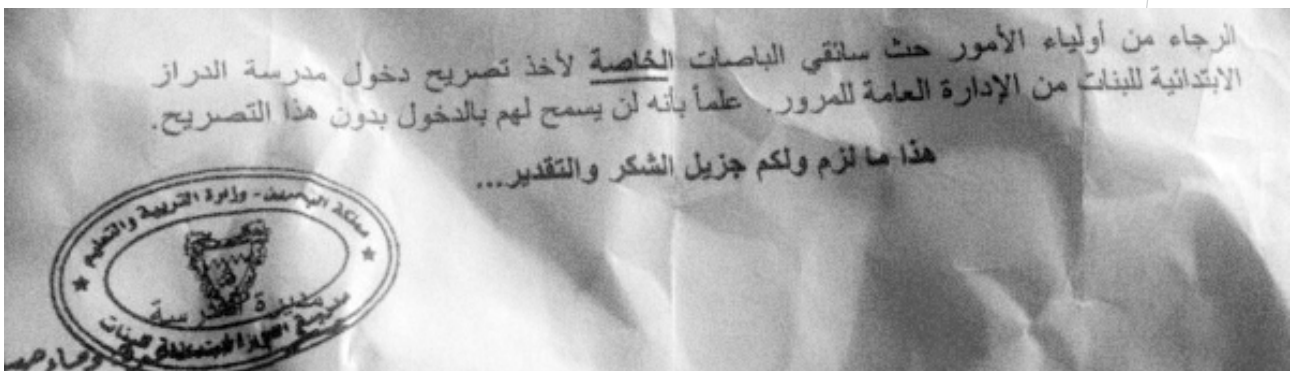 الرجاء من أولياء الأمور حث سائقي الباصات الخاصة لأخذ تصريح دخول مدرسة الدراز
الابتدائية للبنات من الإدارة العامة للمرور. علماً بأنه لن يسمح لهم بالدخول بدون هذا التصريح.
هذا ما لزم ولكم جزيل الشكر والتقدير...
مملكة البحرين - وزارة التربية والتعليم
مديرة المدرسة
مدرسة الدراز الابتدائية للبنات